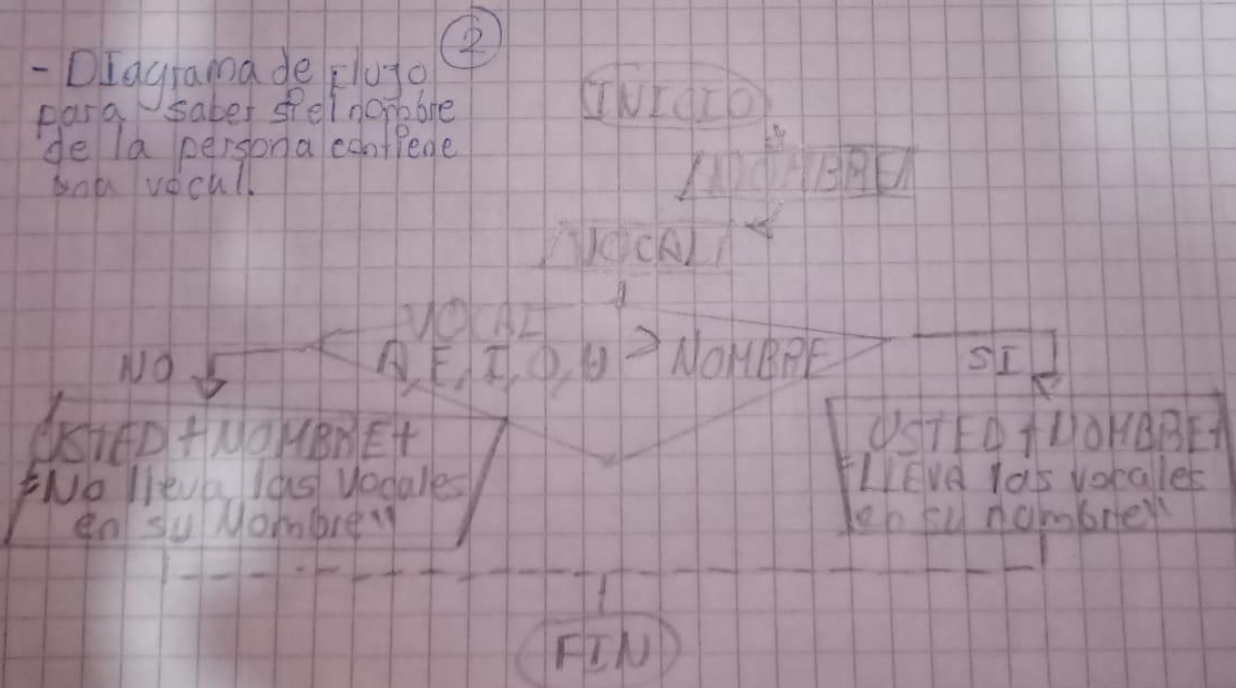 2
- DIagrama de Flujo
para saber si el nombre
de la persona contiene
una vocal.
INICIO
NOMBRE
VOCAL
VOCAL
A, E, I, O, U > NOMBRE
NO
SI
USTED + NOMBRE +
"No lleva las vocales
en su Nombre"
USTED + NOMBRE +
"LLEVA las vocales
en su nombre"
FIN